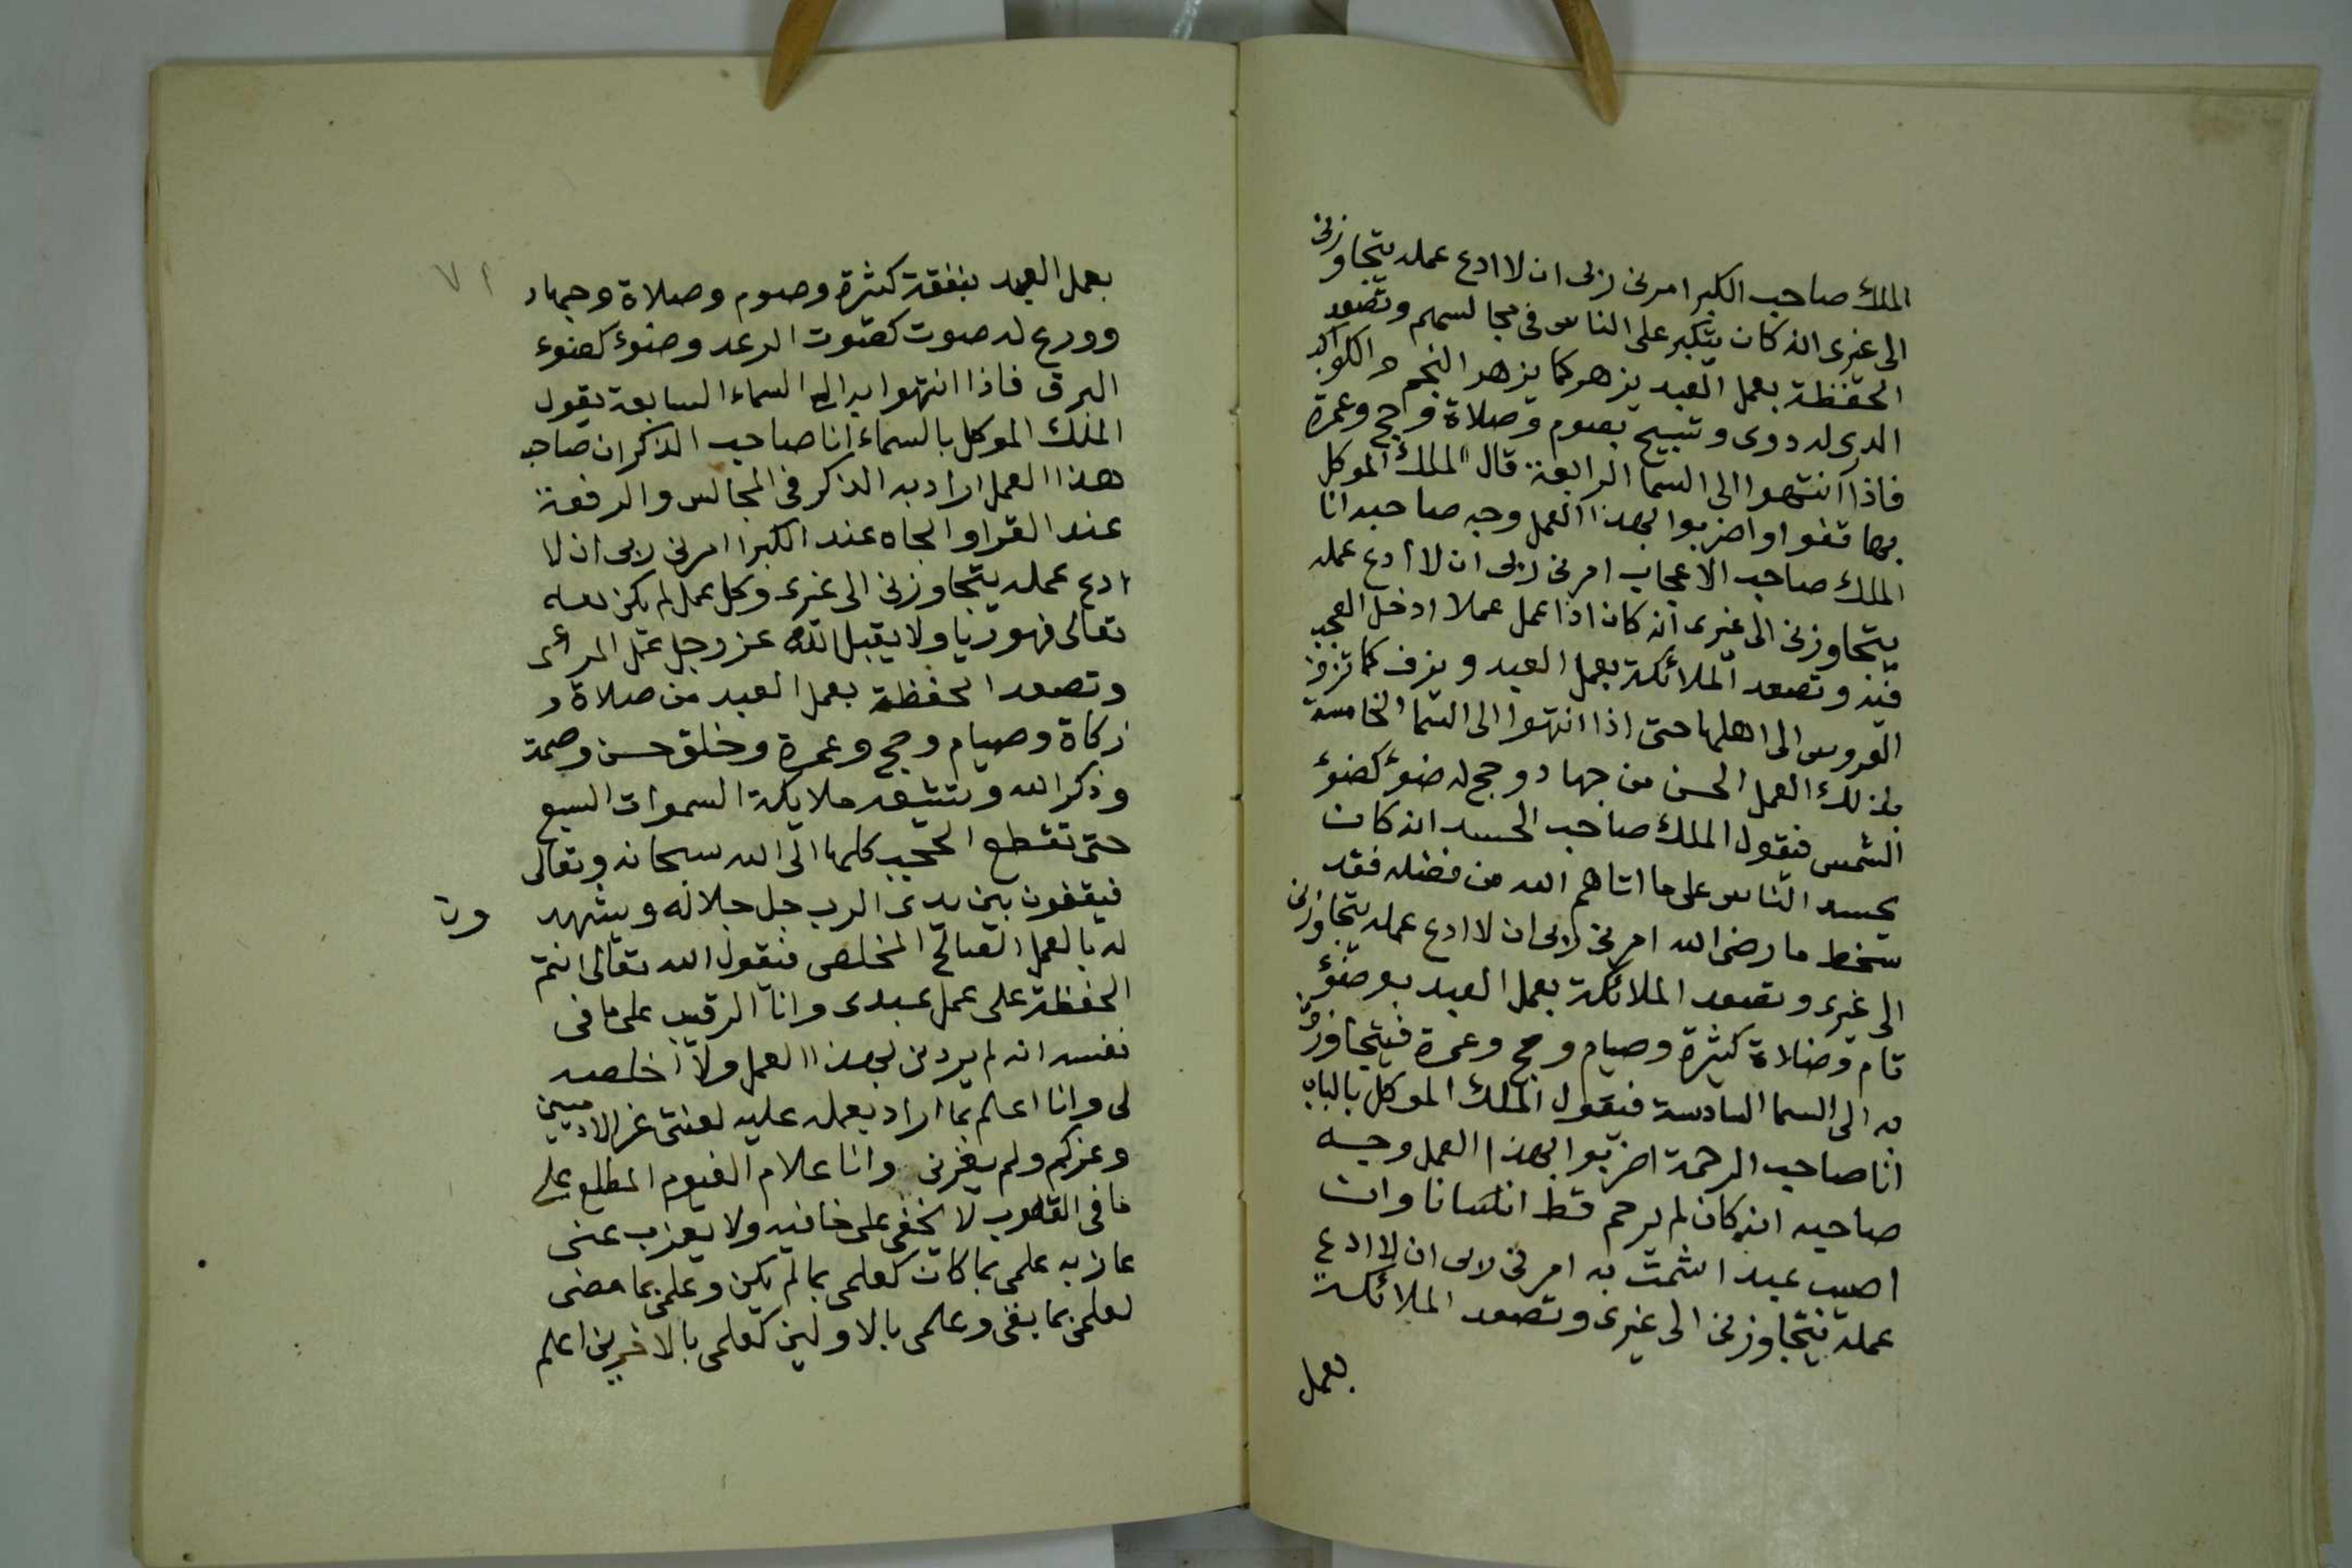 الملك صاحب الكبر امرنى ربى ان لا ادع عمله يتجاوزنى
الى غيرى انه كان يتكبر على الناس فى مجالسهم وتصعد
الحفظة بعمل العبد يزهر كما يزهر النجم والكوكب
الدرى له دوى وتسبيح بصوم وصلاة وحج وعمرة
فاذا انتهوا الى السما الرابعة قال الملك الموكل
بها قفوا واضربوا بهذا العمل وجه صاحبه انا
الملك صاحب الاعجاب امرنى ربى ان لا أدع عمله
يتجاوزنى الى غيرى انه كان اذا عمل عملا ادخل العجب
فيه وتصعد الملائكة بعمل العبد ويزف كما تزف
العروس الى اهلها حتى اذا انتهوا الى السما الخامسة
بذلك العمل الحسن من جهاد وحج له ضوء كضوء
الشمس فيقول الملك صاحب الحسد انه كان
يحسد الناس على ما اتاهم الله من فضله فقد
سخط ما رضى الله امرنى ربى ان لا ادع عمله يتجاوزنى
الى غيرى وتصعد الملائكة بعمل العبد بوضوء
تام وصلاة كثيرة وصيام وحج وعمرة فيتجاوزن
به الى السما السادسة فيقول الملك الموكل بالباب
انا صاحب الرحمة اضربوا بهذا العمل وجه
صاحبه انه كان لم يرحم قط انسانا وان
اصيب عبد اشمت به امرنى ربى ان لا ادع
عمله يتجاوزنى الى غيرى وتصعد الملائكة
بعمل
٧٢
بعمل العبد بنفقة كثيرة وصوم وصلاة وجهاد
وورع له صوت كصوت الرعد وضوء كضوء
البرق فاذا انتهوا به الى السماء السابعة يقول
الملك الموكل بالسماء انا صاحب الذكر ان صاحب
هذا العمل اراد به الذكر فى المجالس والرفعة
عند القرا والجاه عند الكبرا امرنى ربى ان لا
ادع عمله يتجاوزنى الى غيرى وكل عمل لم يكن لله
تعالى فهو ريا ولا يقبل الله عز وجل عمل المرائى
وتصعد الحفظة بعمل العبد من صلاة و
زكاة وصيام وحج وعمرة وخلق حسن وصمت
وذكر الله وتشيعه ملايكة السموات السبع
حتى تقطع الحجب كلها الى الله سبحانه وتعالى
فيقفون بين يدى الرب جل جلاله ويشهد ون
له بالعمل الصالح المخلص فيقول الله تعالى انتم
الحفظة على عمل عبدى وانا الرقيب على ما فى
نفسه انه لم يردنى بهذا العمل ولا اخلصه
لى وانا اعلم بما اراد بعمله عليه لعنتى غر الادميين
وغركم ولم يغرنى وانا علام الغيوب المطلع على
ما فى القلوب لا يخفى على خافيه ولا يعزب عنى
عازبه علمى بما كان كعلمى بما لم يكن وعلمى بما مضى
لعلمى بما بقى وعلمى بالاولين كعلمى بالاخرين اعلم